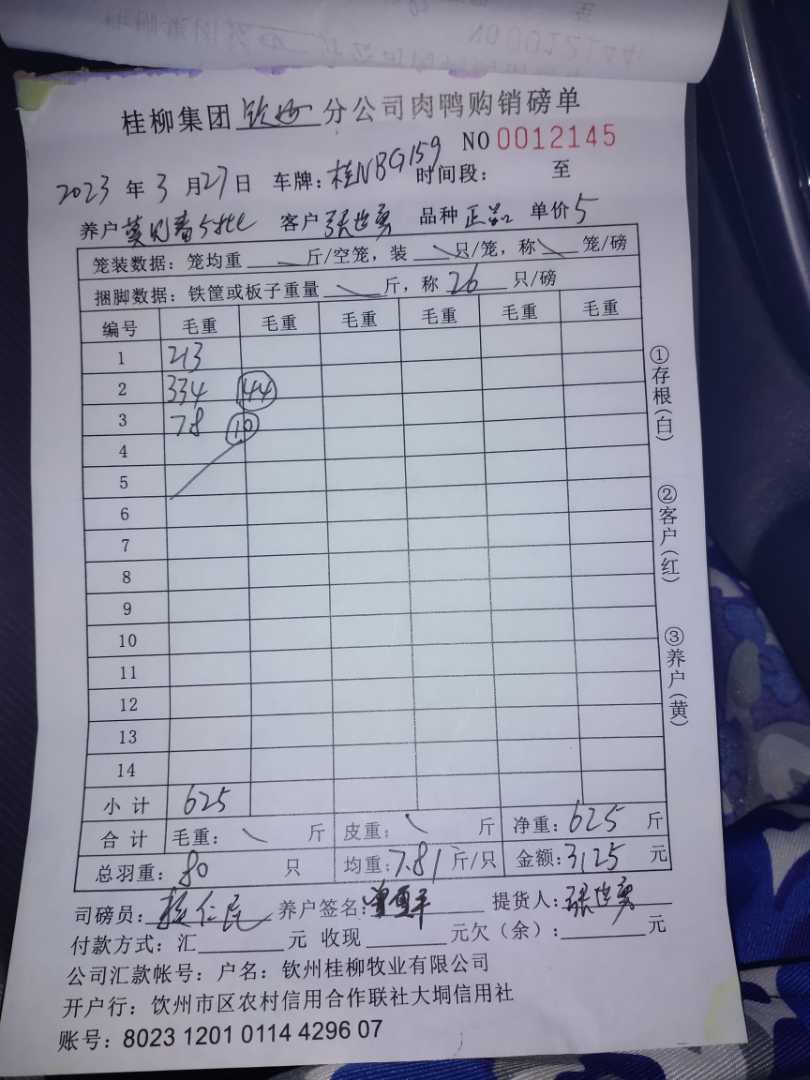 桂柳集团 钦州 分公司肉鸭购销磅单
NO 0012145
2023 年 3 月 27 日 车牌: 桂NBG159 时间段: 至
养户 客户 张世勇 品种 正品 单价 5
笼装数据: 笼均重 斤/空笼, 装 只/笼, 称 笼/磅
捆脚数据: 铁筐或板子重量 斤, 称 26 只/磅
编号 毛重 毛重 毛重 毛重 毛重 毛重
1 213
2 334 44
3 78 10
4
5
6
7
8
9
10
11
12
13
14
小计 625
合计 毛重: 斤 皮重: 斤 净重: 625 斤
总羽重: 80 只 均重: 7.81 斤/只 金额: 3125 元
司磅员: 养户签名: 提货人: 张世勇
付款方式: 汇 元 收现 元欠(余): 元
公司汇款帐号: 户名: 钦州桂柳牧业有限公司
开户行: 饮州市区农村信用合作联社大垌信用社
账号: 8023 1201 0114 4296 07
①存根(白)
②客户(红)
③养户(黄)